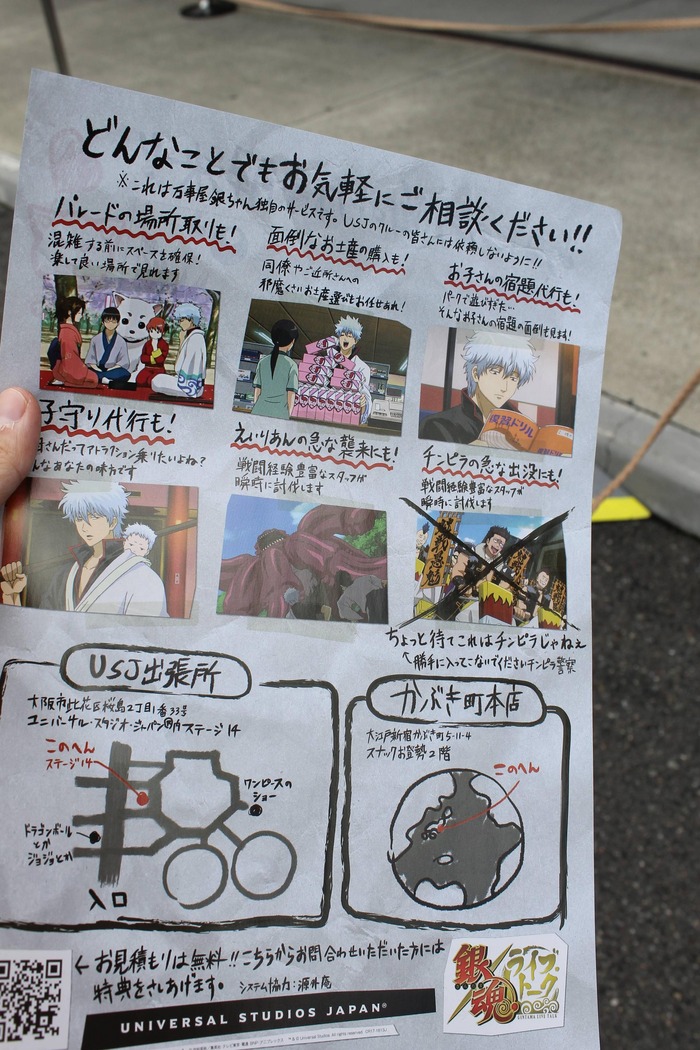 どんなことでもお気軽にご相談ください!!
※これは万事屋銀ちゃん独自のサービスです。USJのクルーの皆さんには依頼しないように!!
パレードの場所取りも!
混雑する前にスペースを確保!
楽して良い場所で見れます
面倒なお土産の購入も!
同僚やご近所さんへの
邪魔くさいお土産選びもお任せあれ!
お子さんの宿題代行も!
パークで遊びすぎた…
そんなお子さんの宿題の面倒も見ます!
復習ドリル
子守り代行も!
さんだってアトラクション乗りたいよね?
んなあなたの味方です
えいりあんの急な襲来にも!
戦闘経験豊富なスタッフが
瞬時に討伐します
チンピラの急な出没にも!
戦闘経験豊富なスタッフが
瞬時に討伐します
ちょっと待てこれはチンピラじゃねぇ
↑勝手に入ってこないでくださいチンピラ警察
USJ出張所
大阪市此花区桜島2丁目1番33号
ユニバーサル・スタジオ・ジャパン®内ステージ14
このへん
ステージ14
ワンピースの
ショー
ドラゴンボール
とか
ジョジョとか
入口
かぶき町本店
大江戸新宿かぶき町5-11-4
スナックお登勢2階
このへん
←お見積もりは無料!!こちらからお問合わせいただいた方には
特典をさしあげます。
システム協力:源外庵
UNIVERSAL STUDIOS JAPAN®
銀魂
ライブ・
トーク
GINTAMA LIVE TALK